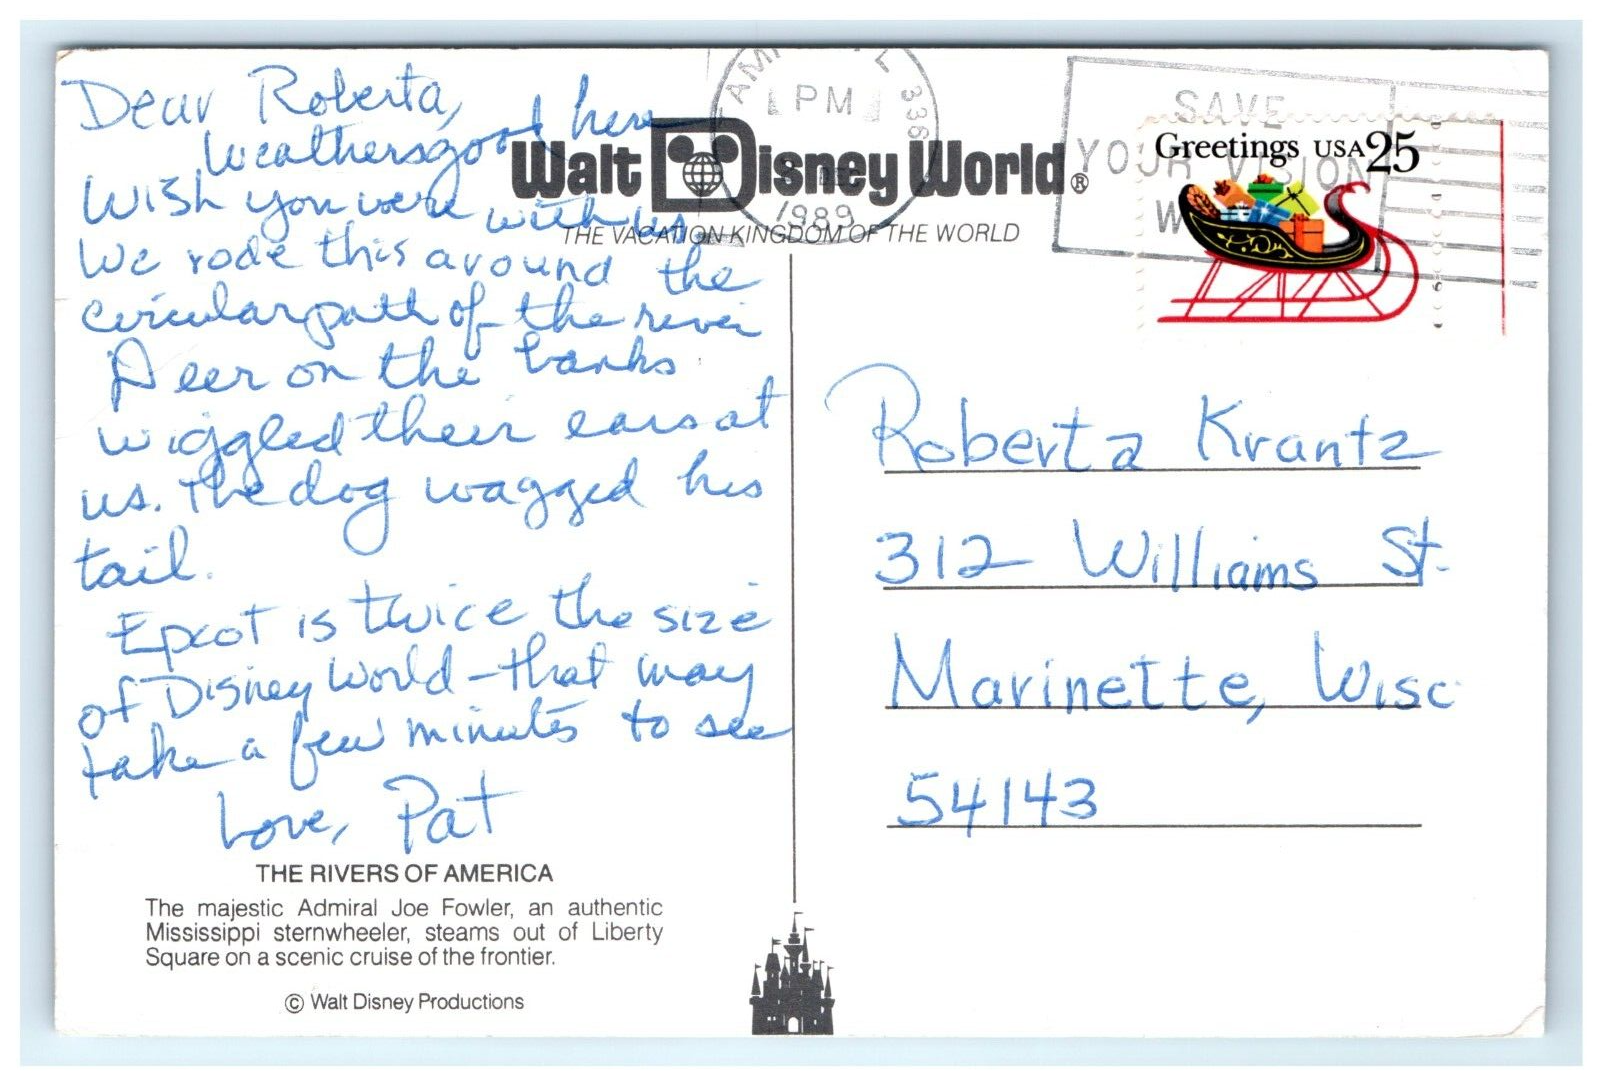 Dear Roberta,
Weather's good here
Wish you were with us
We rode this around the
circular path of the river
Deer on the banks
wiggled their ears at
us. The dog wagged his
tail.
Epcot is twice the size
of Disney World - that may
take a few minutes to see
Love, Pat
THE RIVERS OF AMERICA
The majestic Admiral Joe Fowler, an authentic
Mississippi sternwheeler, steams out of Liberty
Square on a scenic cruise of the frontier.
© Walt Disney Productions
Walt Disney World®
THE VACATION KINGDOM OF THE WORLD
PM
1989
336
SAVE
YOUR VISION
Greetings USA 25
Roberta Krantz
312 Williams St.
Marinette, Wisc
54143